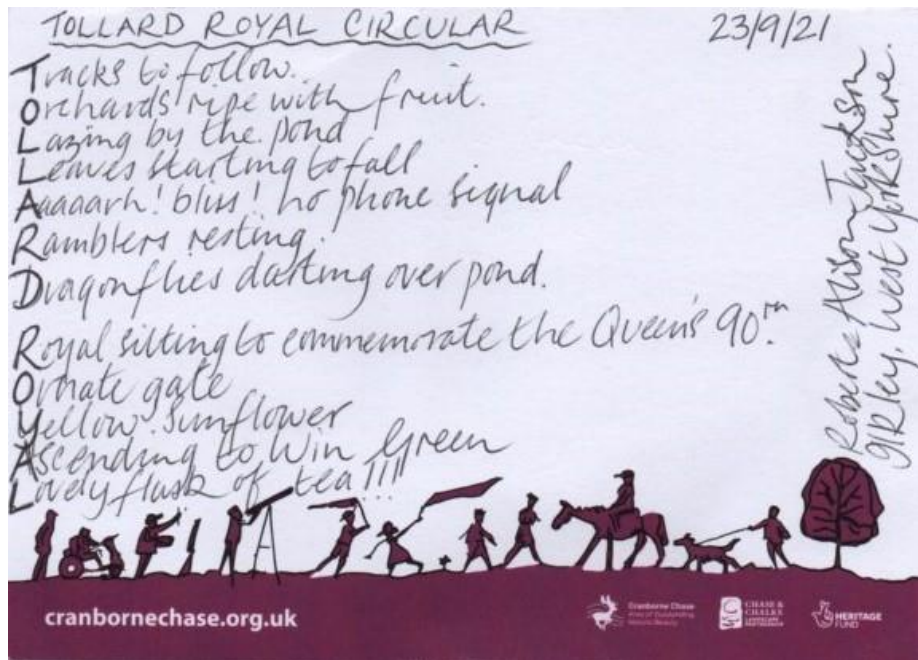 TOLLARD ROYAL CIRCULAR
23/9/21
Tracks to follow.
Orchards ripe with fruit.
Lazing by the pond
Leaves starting to fall
Aaaaarh! bliss! no phone signal
Ramblers resting.
Dragonflies darting over pond.
Royal sitting to commemorate the Queen's 90th.
Ornate gate
Yellow Sunflower
Ascending to Win Green
Lovely flask of tea!!!
Robert & Alison Jackson
West Yorkshire.
cranbornechase.org.uk
Cranborne Chase
Area of Outstanding
Natural Beauty
CHASE &
CHALKE
LANDSCAPE
PARTNERSHIP
HERITAGE
FUND